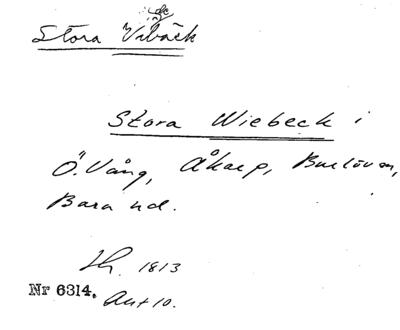 Stora Vibäck
Stora Wiebeck i
Ö. Vång, Åkarp, Burlöv sn,
Bara hd.
1813
Nr 6314. Akt 10.